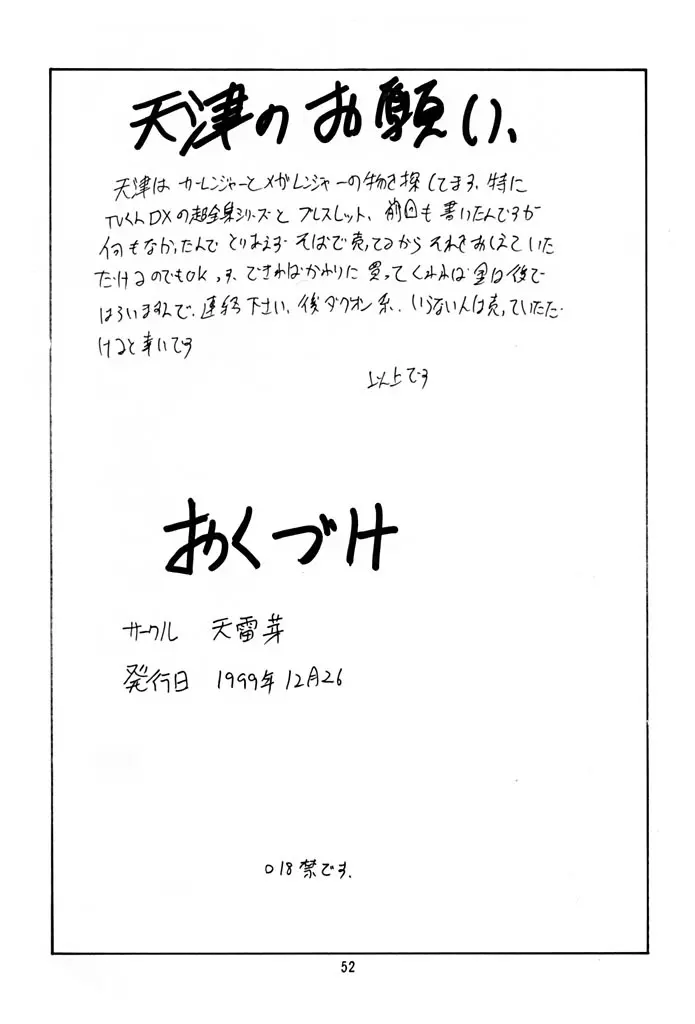 天津のお願い、
天津は カーレンジャーとメガレンジャーの物を探してます、特に
TVくんDXの超全集シリーズと ブレスレット、前回も書いたんですが
何もなかったんで とりあえず そばで売ってるから それをおしえていた
だけるのでもOKっす、できればかわりに 買ってくれれば金は後で
はらいますんで、連絡下さい、後ダグオン系、いらない人は売っていただ
けると幸いです
以上です
おくづけ
サークル 天雷芽
発行日 1999年12月26
○18禁です.
52